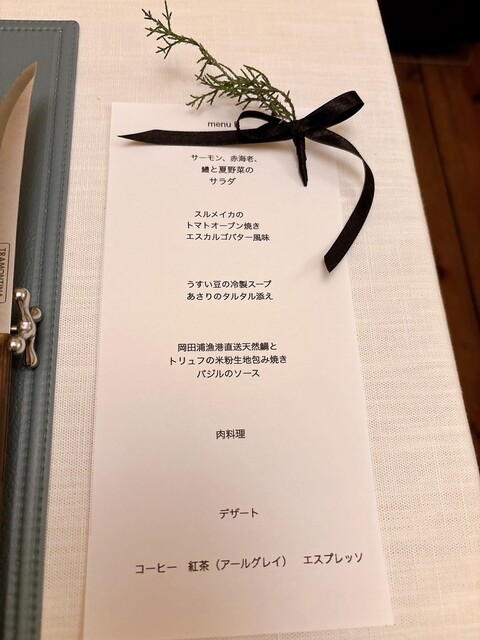 menu
サーモン、赤海老、
鱧と夏野菜の
サラダ
スルメイカの
トマトオーブン焼き
エスカルゴバター風味
うすい豆の冷製スープ
あさりのタルタル添え
岡田浦漁港直送天然鯛と
トリュフの米粉生地包み焼き
バジルのソース
肉料理
デザート
コーヒー 紅茶（アールグレイ） エスプレッソ
TRAMONTINA